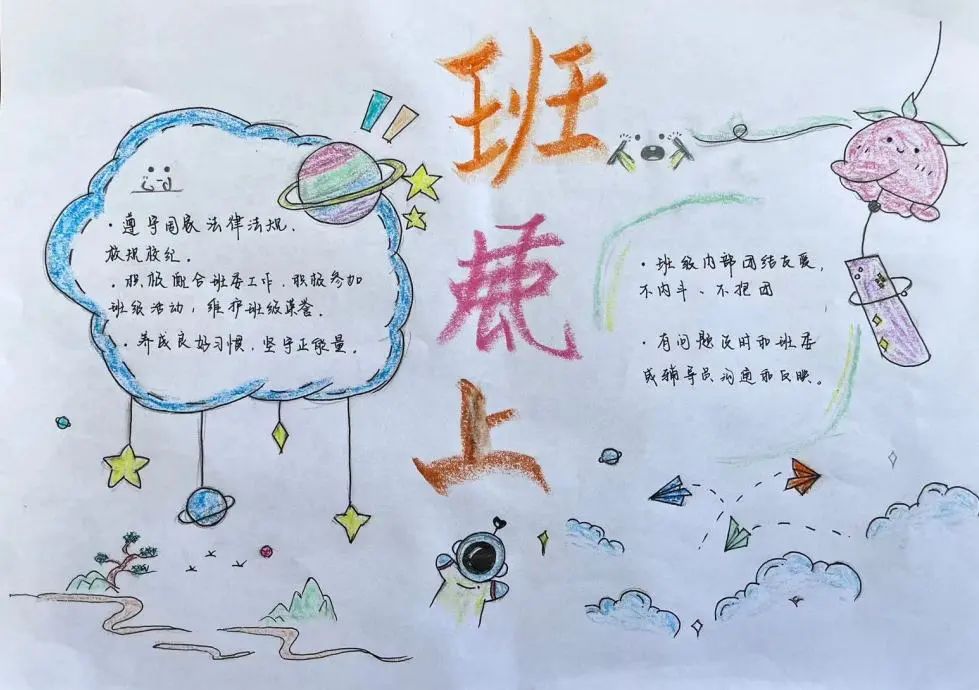 班
上
·遵守国家法律法规,
校规校纪。
·积极配合班委工作,积极参加
班级活动,维护班级荣誉。
·养成良好习惯,坚守正能量。
·班级内部团结友爱,
不内斗、不抱团
·有问题及时和班委
或辅导员沟通和反映。